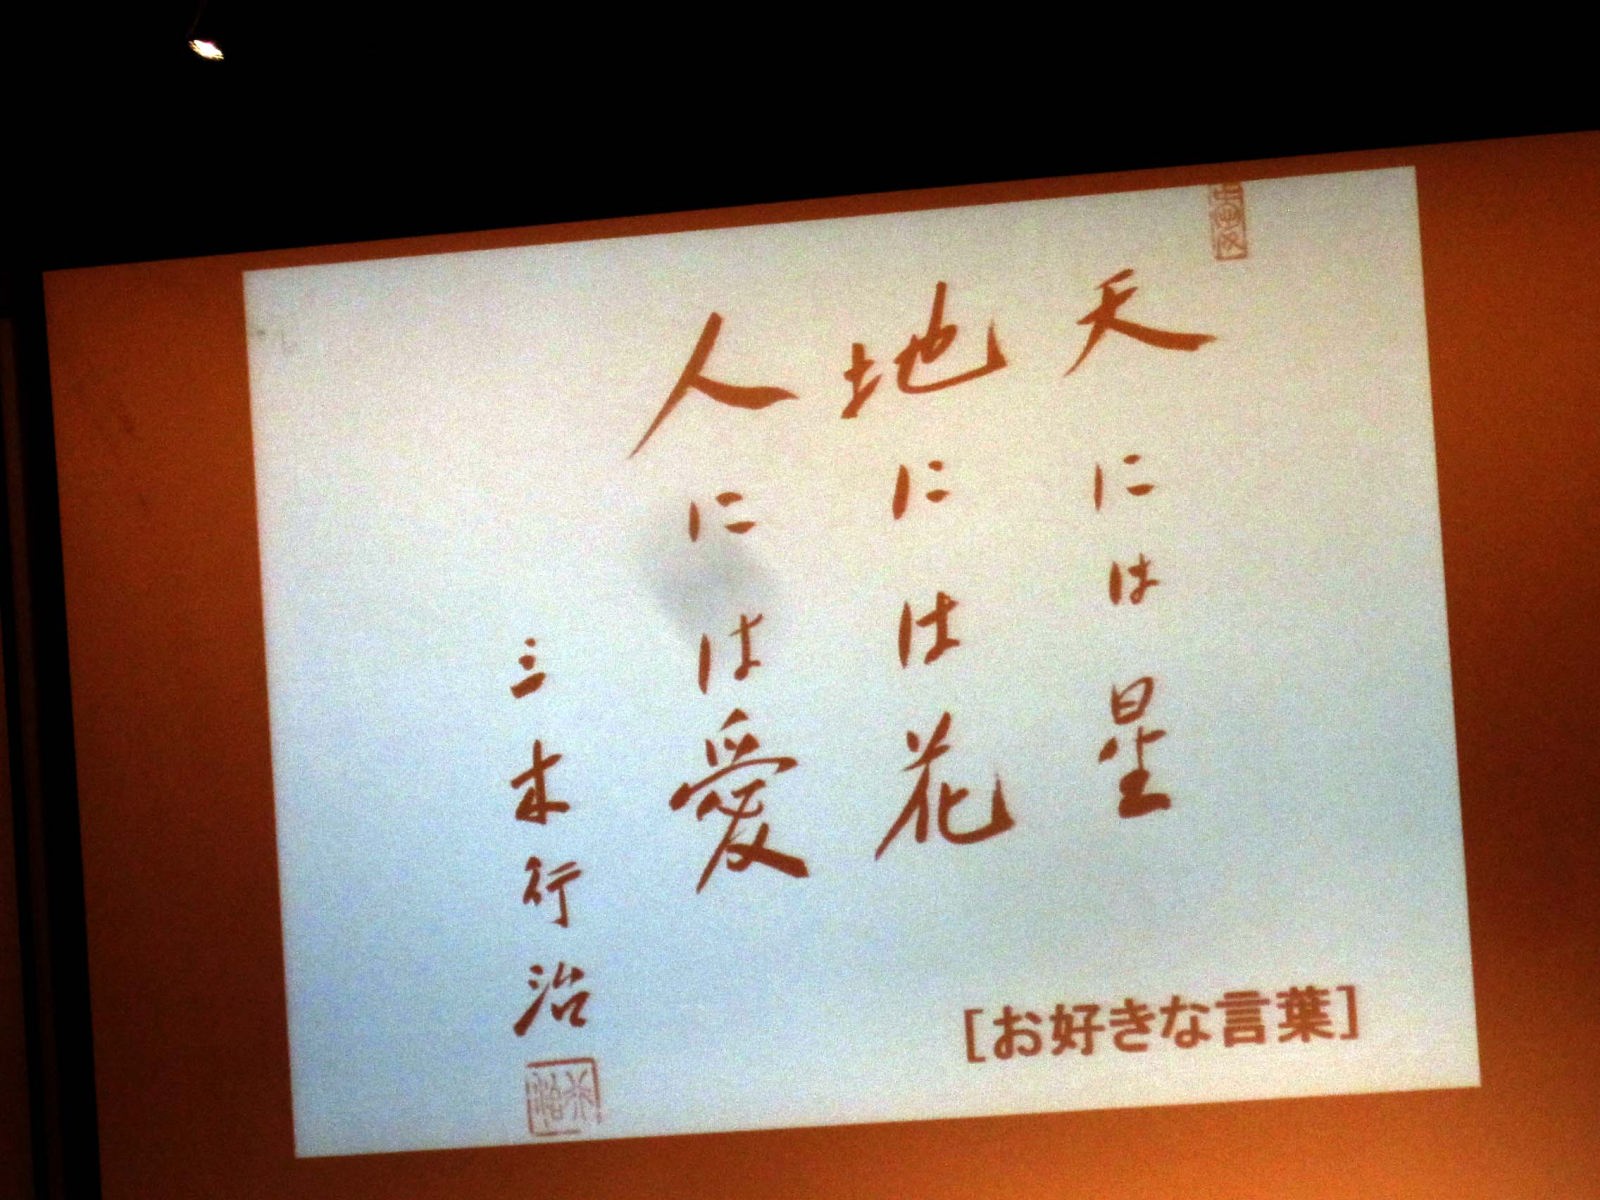 天には星
地には花
人には愛
三木行治
[お好きな言葉]